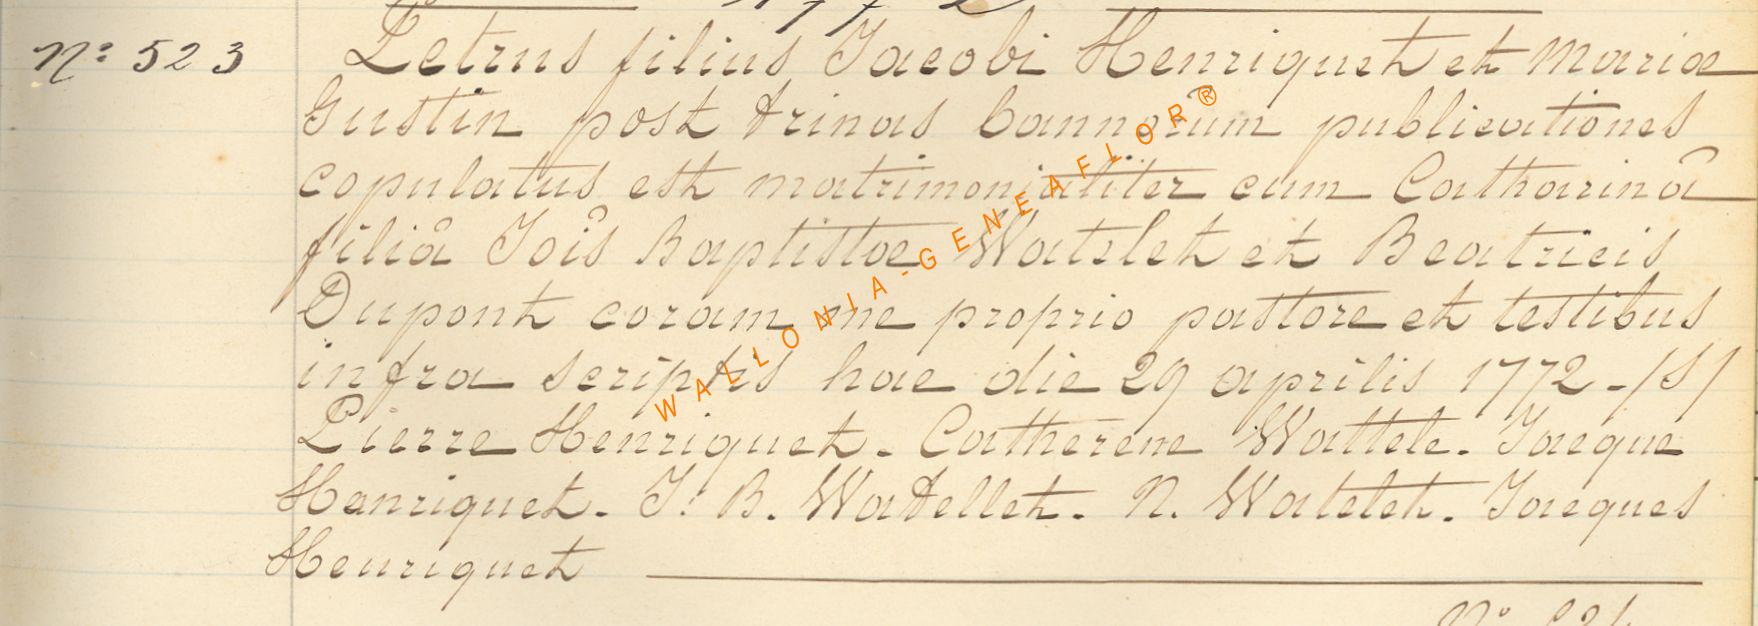 1772
N° 523 Petrus filius Jacobi Henriquet et Mariæ
Gustin post trinas bannorum publicationes
copulatus est matrimonialiter cum Catharinâ
filiâ Jois Baptistæ Watelet et Beatricis
Dupont coram me proprio pastore et testibus
infra scriptis hac die 29 aprilis 1772 - /S/
Pierre Henriquet. Catherene Wattele. Jacque
Hanriquet. J. B. Watellet. N. Watelet. Jacques
Henriquet
N°
WALLONIA-GENEAFLOR®